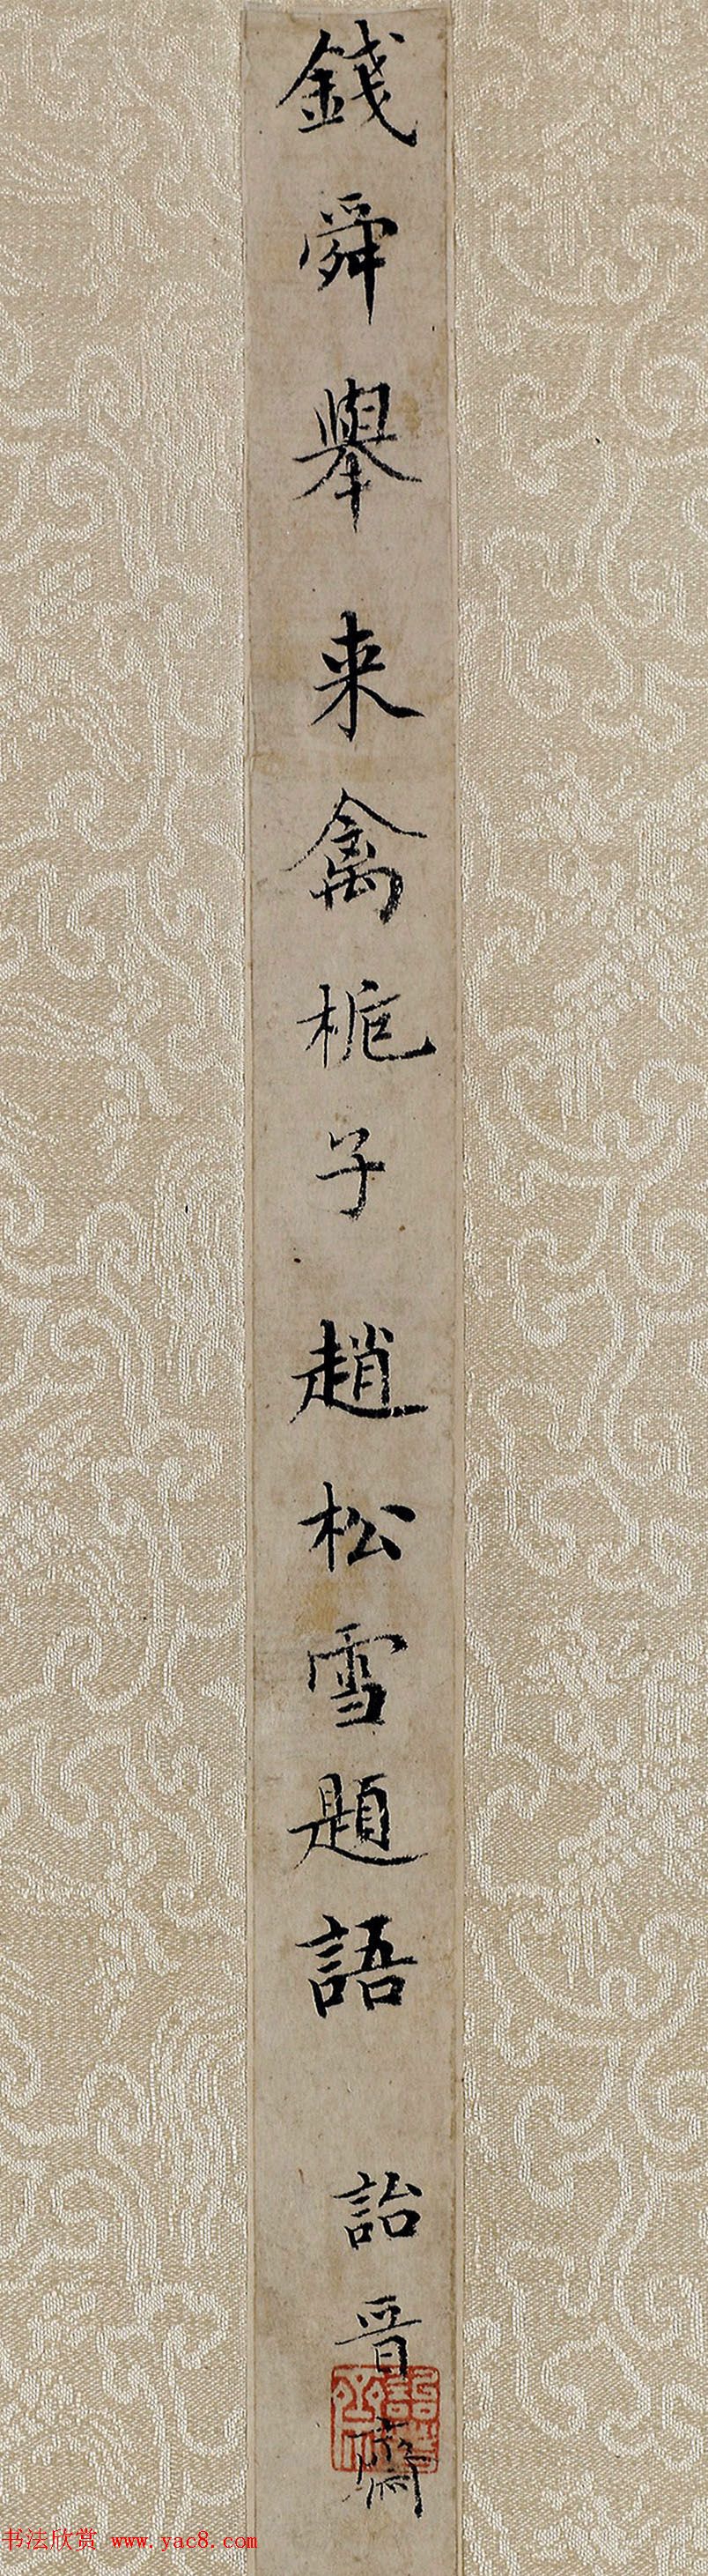 錢舜舉来禽梔子趙松雪題語
詒晉齋
詒晉齋
书法欣赏 www.yac8.com